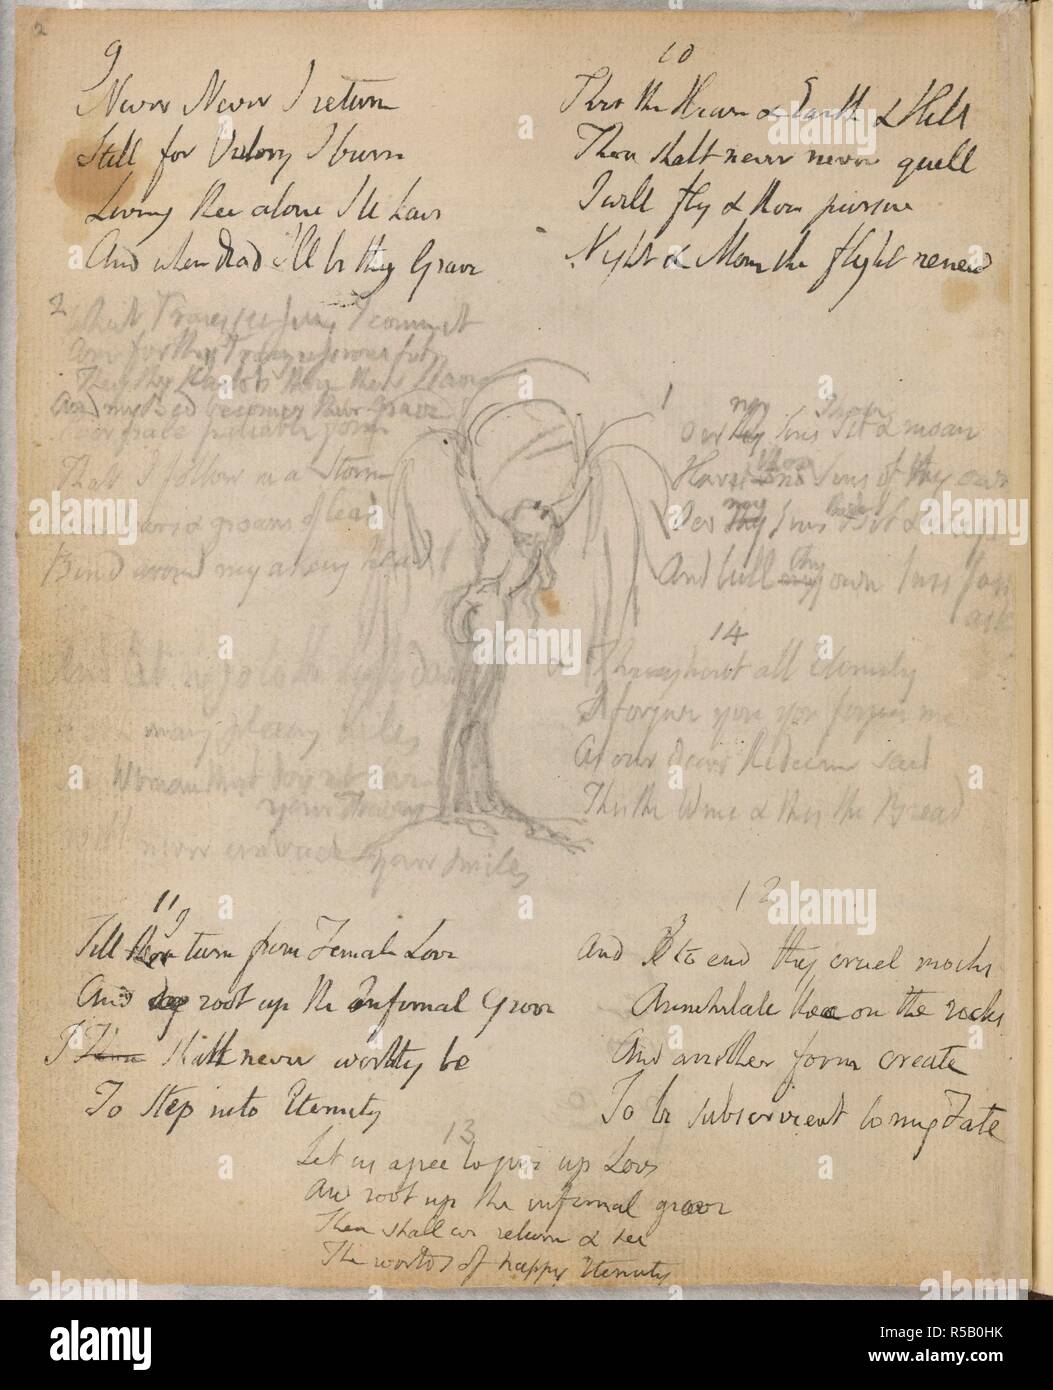 2
9
Never Never I return
Still for Victory I burn
Living thee alone I'll have
And when dead I'll be thy Grave
10
Thro the Heavn & Earth & Hell
Thou shalt never never quell
I will fly & thou pursue
Night & Morn the flight renew
2
What Transgressions I commit
Are for thy Transgressions fit
They thy Harlots thou their Slave
And my Bed becomes their Grave
pale pitiable form
That I follow in a Storm
tears & groans of lead
Bind around my aking head
1
my Thou
Oer thy Sins Sit & moan
Hast thou no Sins of thy own
my
Oer thy Sins Sit & weep
thy
And lull my own Sins fast
asleep
And let us go to the
many pleasing wiles
Woman that does not love
your Frowns
Will never embrace your smiles
14
& Throughout all Eternity
I forgive you you forgive me
As our dear Redeemer said
This the Wine & this the Bread
11
I
Till thou turn from Female Love
And root up the Infernal Grove
I Thou shall never worthy be
To Step into Eternity
12
And to end thy cruel mocks
Annihilate thee on the rocks
And another form create
To be subservient to my Fate
13
Let us agree to give up Love
And root up the infernal grove
Then shall we return & see
The worlds of happy Eternity
alamy
a
alamy
www.alamy.com
Image ID: R5B0HK